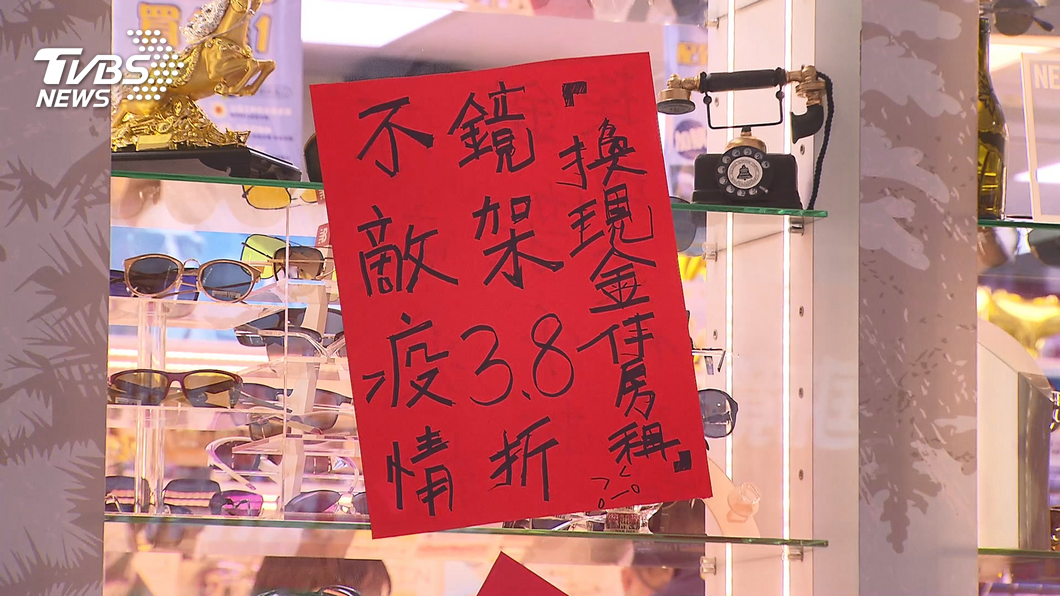 TVBS
NEWS
不敵疫情
鏡架3.8折
『換現金付房租』